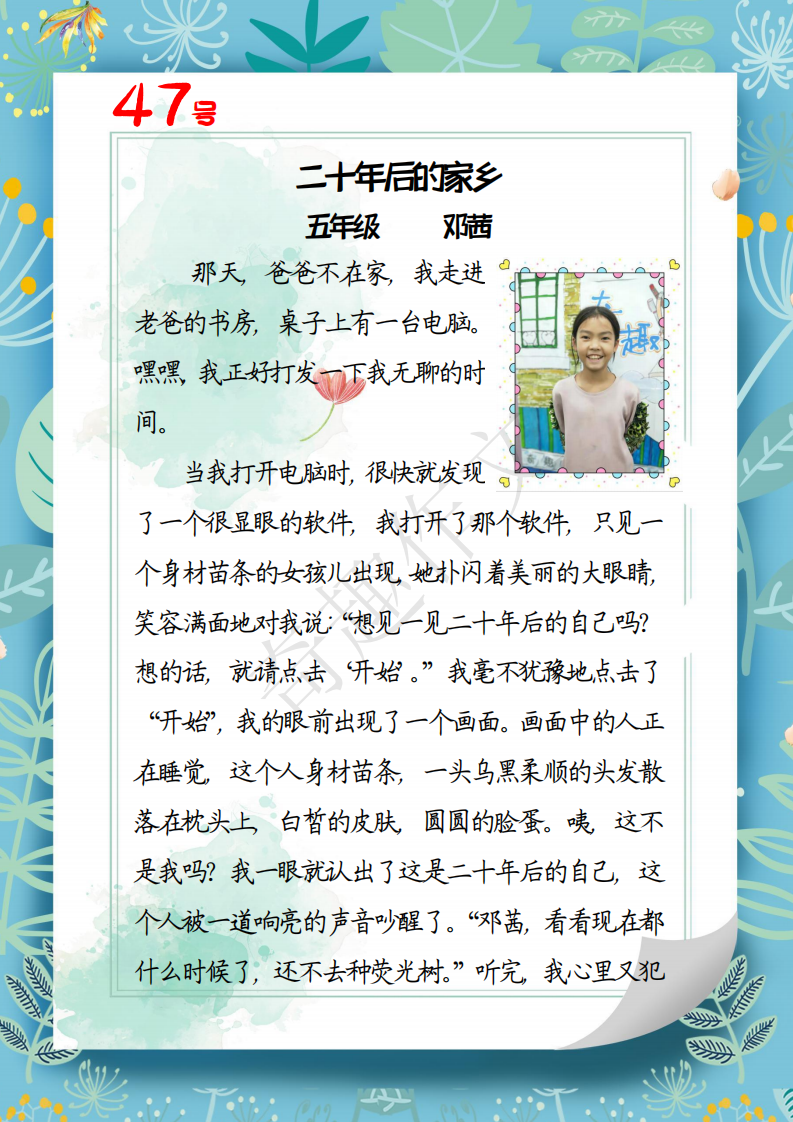 47号
二十年后的家乡
五年级 邓茜
那天，爸爸不在家，我走进
老爸的书房，桌子上有一台电脑。
嘿嘿，我正好打发一下我无聊的时
间。
当我打开电脑时，很快就发现
了一个很显眼的软件，我打开了那个软件，只见一
个身材苗条的女孩儿出现，她扑闪着美丽的大眼睛，
笑容满面地对我说：“想见一见二十年后的自己吗？
想的话，就请点击‘开始’。”我毫不犹豫地点击了
“开始”，我的眼前出现了一个画面。画面中的人正
在睡觉，这个人身材苗条，一头乌黑柔顺的头发散
落在枕头上，白皙的皮肤，圆圆的脸蛋。咦，这不
是我吗？我一眼就认出了这是二十年后的自己，这
个人被一道响亮的声音吵醒了。“邓茜，看看现在都
什么时候了，还不去种荧光树。”听完，我心里又犯
奇趣作文
趣